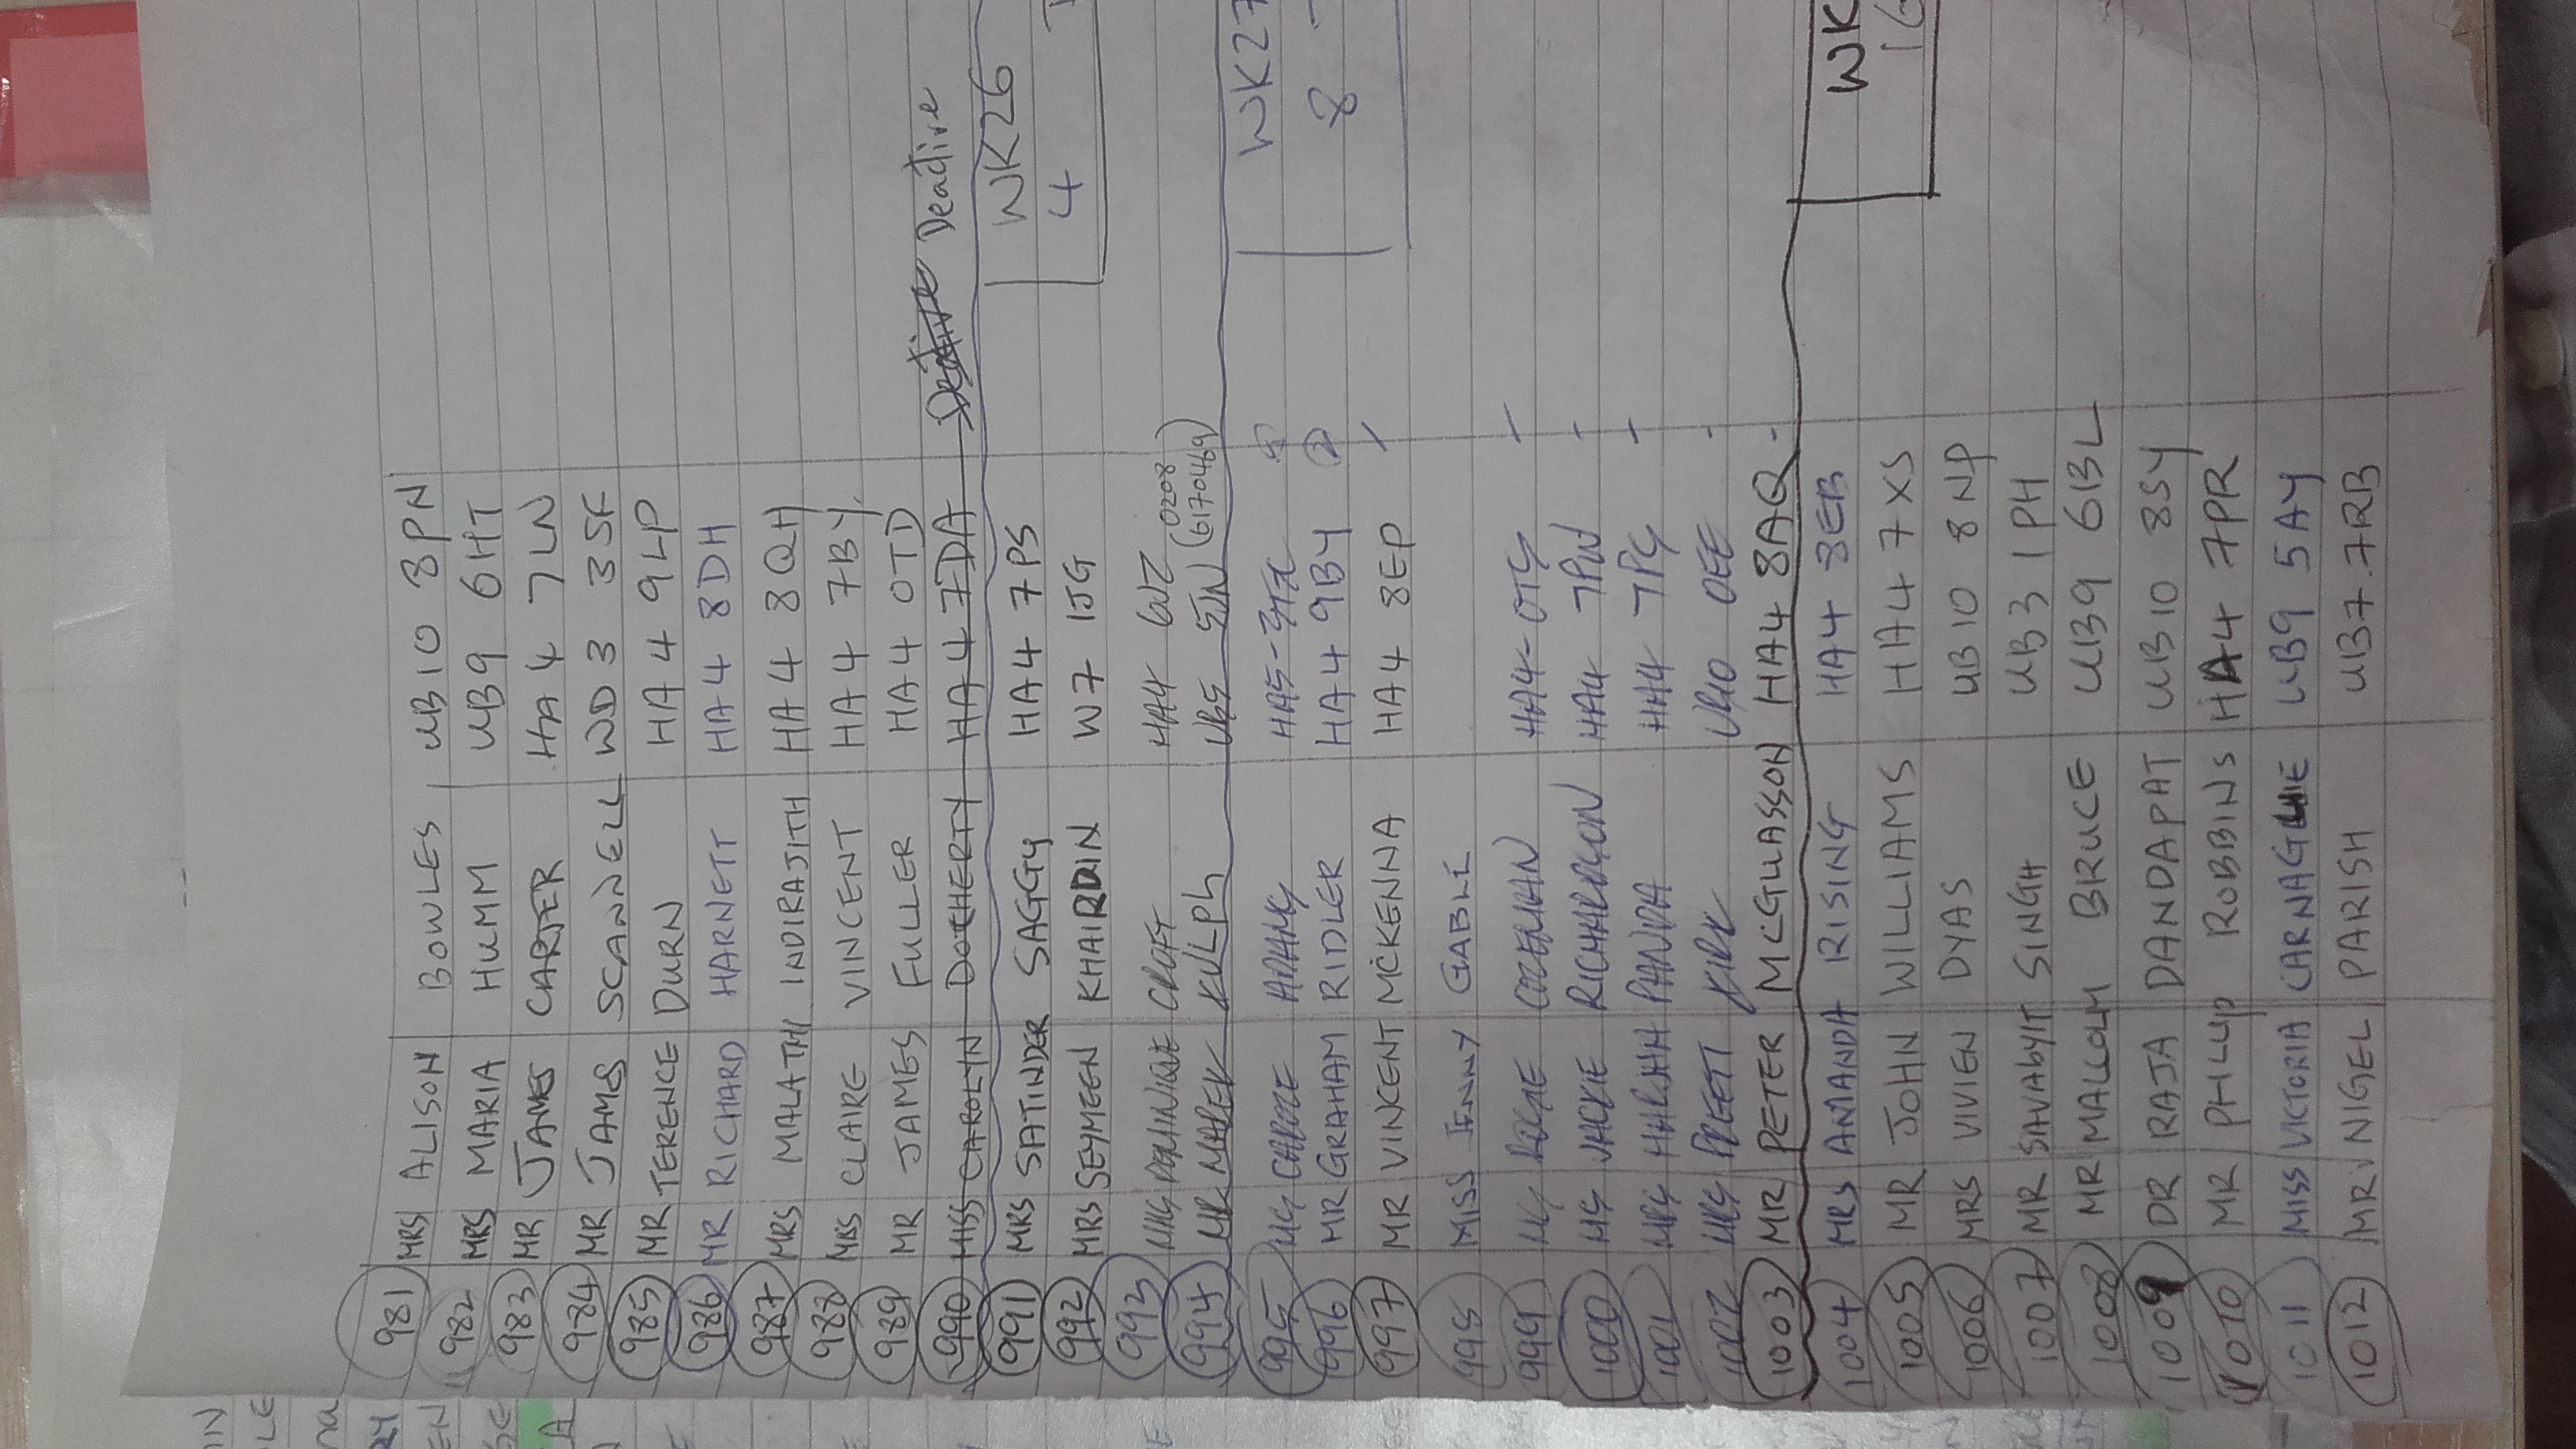 981 MRS ALISON BOWLES UB10 8PN
982 MRS MARIA HUMM UB9 6HT
983 MR JAMES CARTER HA4 7LN
984 MR JAMES SCANNELL WD3 3SF
985 MR TERENCE DURN HA4 9LP
986 MR RICHARD HARNETT HA4 8DH
987 MRS MALATHI INDIRAJITH HA4 8QH
988 MISS CLAIRE VINCENT HA4 7BY
989 MR JAMES FULLER HA4 0TD
990 MISS CAROLYN DOCHERTY HA4 7DA Deactive Deactive
991 MRS SATINDER SAGGY HA4 7PS WK26
992 MRS SEYMEEN KHAIRDIN W7 1JG 4
993 MRS DOMINIQUE CROFT HA4 6JZ (0208
994 MR MAREK UB5 5JN 6170469)
995 MS CAROLE ADAMS HA5- WK27
996 MR GRAHAM RIDLER HA4 9BY 2 8
997 MR VINCENT MCKENNA HA4 8EP
998 MISS JENNY GABLE
999 MS ROSIE COLEMAN HA4- 0TS
1000 MS JACKIE RICHARDSON HA4 7PW
1001 MRS PANDA HA4 7PS
1002 MRS PREETI KIRK UB10 0EE
1003 MR PETER MCGLLASSON HA4 8AQ -
1004 MRS AMANDA RISING HA4 8EB WK
1005 MR JOHN WILLIAMS HA4 7XS 16
1006 MRS VIVIEN DYAS UB10 8NP
1007 MR SINGH UB3 1PH
1008 MR MALCOLM BRUCE UB9 6BL
1009 DR RAJA DANDAPAT UB10 8SY
1010 MR PHLLIP ROBBINS HA4 7PR
1011 MISS VICTORIA UB9 5AY
1012 MR NIGEL PARISH UB7 7RB